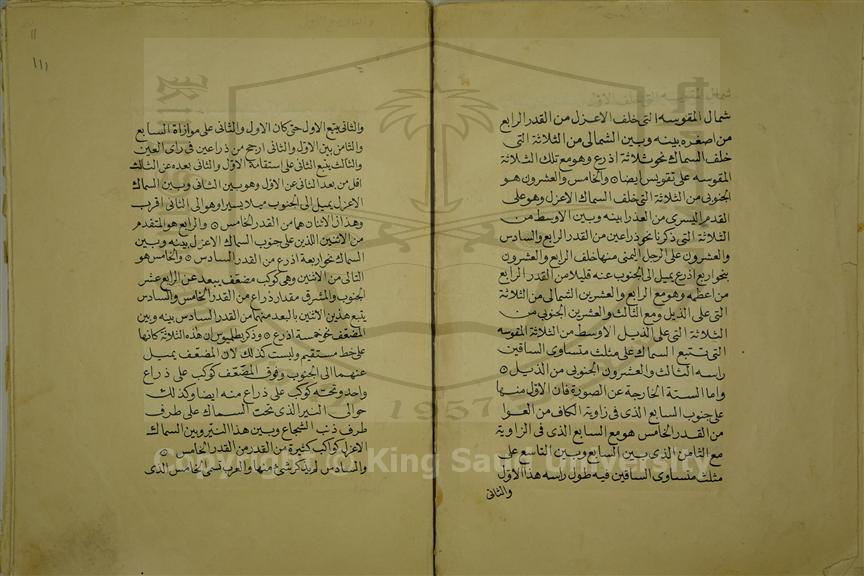 شمال المقوسه التى خلف الاعزل من القدر الرابع
من اصغره بينه وبين الشمالى من الثلاثة التى
خلف السماك نحو ثلاثة اذرع وهو مع تلك الثلاثة
المقوسه على تقويس ايضا ٥ والخامس والعشرون هو
الجنوبى من الثلاثة التى خلف السماك الاعزل وهو على
القدم اليسرى من العذرا بينه وبين الاوسط من
الثلاثة التى ذكرنا نحو ذراعين من القدر الرابع والسادس
والعشرون على الرجل اليمنى منها خلف الرابع والعشرون
بنحو اربع اذرع يميل الى الجنوب عنه قليلا من القدر الرابع
من اعظمه وهو مع الرابع والعشرين الشمالى من الثلاثة
التى على الذيل ومع الثالث والعشرين الجنوبى من
الثلاثة التى على الذيل الاوسط من الثلاثة المقوسه
التى تتبع السماك على مثلث متساوى الساقين
راسه الثالث والعشرون الجنوبى من الذيل ٥
واما الستة الخارجة عن الصورة فان الاول منها
على جنوب السابع الذى فى زاوية الكاف من العوا
من القدر الخامس هو مع السابع الذى فى الزاوية
مع الثامن الذى بين السابع وبين التاسع على
مثلث متساوى الساقين فيه طول راسه هذا الاول
والثانى
١١١
والثانى يتبع الاول حتى كان الاول والثانى على موازاة السابع
والثامن بين الاول والثانى ارجح من ذراعين فى راى العين
والثالث يتبع الثانى على استقامة الاول والثانى بعده عن الثالث
اقل من بعد الثانى عن الاول وهو بين الثانى وبين السماك
الاعزل يميل الى الجنوب ميلا يسيرا وهو الى الثانى اقرب
وهذان الاثنان هما من القدر الخامس ٥ والرابع هو المتقدم
من الاثنين اللذين على جنوب السماك الاعزل بينه وبين
السماك نحو اربعة اذرع من القدر السادس ٥ والخامس هو
التالى من الاثنين وهى كوكب مضعّف يبعد عن الرابع عشر
الجنوب والمشرق مقدار ذراع من القدر الخامس والسادس
يتبع هذين الاثنين بالبعد منهما من القدر السادس بينه وبين
المضعّف نحو خمسة اذرع ٥ وذكر بطلميوس ان هذه الثلاثة كانها
على خط مستقيم وليست كذلك لان المضعّف يميل
عنهما الى الجنوب وفوق المضعّف كوكب على ذراع
واحد وتحته كوكب على ذراع منه ايضا وكذلك
حوالى النير الذى تحت السماك على طرف
طرف ذنب الشجاع وبين هذا النير وبين السماك
الاعزل كواكب كثيرة من القدر من القدر الخامس ٥
والسادس لم يذكر شئ منها والعرب تسمى الخامس الذى
1957
Copyright © King Saud University